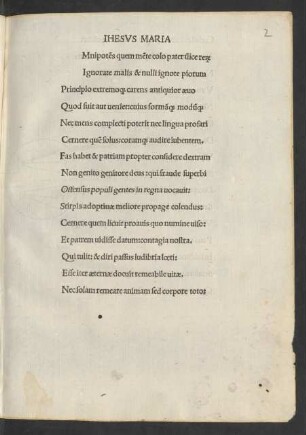 2
IHESVS MARIA
Mnipotēs quem mēte colo pater ũice reꝝ
Ignorate malis & nulli ignote piorum
Principio extremoqꝫ carens antiquior æuo
Quod fuit aut ueniens cuius formãqꝫ modũqꝫ
Nec mens complecti poterit nec lingua profari
Cernere quē solus: coramqꝫ audire iubentem.
Fas habet & patriam propter considere dextram
Non genito genitore deus qui fraude superbi
Offensus populi gentes in regna uocauit:
Stirpis adoptiuæ meliore propage colendus:
Cernere quem licuit proauis quo numine uiso:
Et patrem uidisse datum: contagia nostra.
Qui tulit: & diri passus ludibria lœti:
Esse iter æternæ docuit remeabile uitæ.
Nec solam remeare animam sed corpore totot